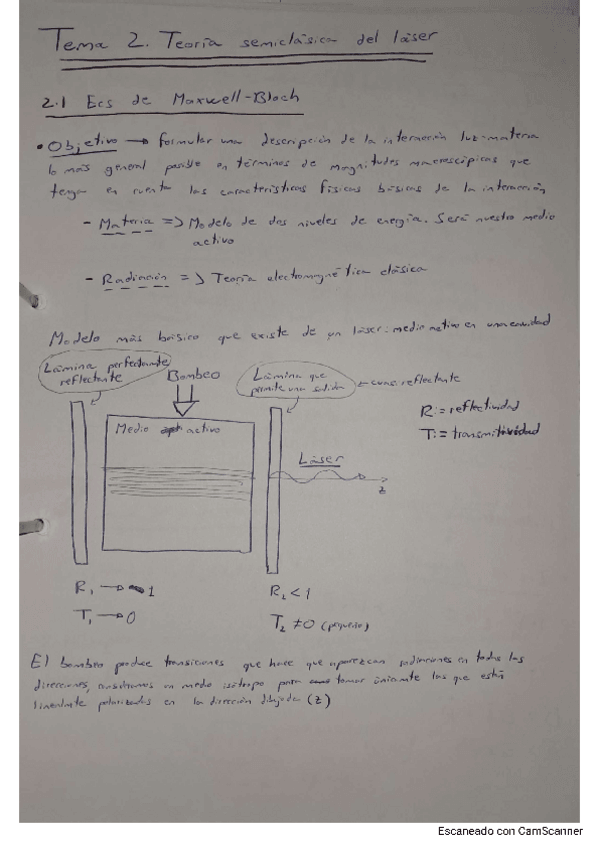 Tema 2. Teoría semiclásica del láser
2.1 Ecs de Maxwell-Bloch
• Objetivo → formular una descripción de la interacción luz-materia
lo más general posible en términos de magnitudes macroscópicas que
tenga en cuenta las características físicas básicas de la interacción
- Materia => Modelo de dos niveles de energía. Será nuestro medio
activo
- Radiación => Teoría electromagnética clásica
Modelo más básico que existe de un láser: medio activo en una cavidad
Lámina perfectamente
reflectante
Bombeo
Lámina que
permite una salida
← cuasireflectante
R := reflectividad
T := transmitividad
Medio activo
Láser
z
R₁ → 1
T₁ → 0
R₂ < 1
T₂ ≠ 0 (pequeño)
El bombeo produce transiciones que hace que aparezcan radiaciones en todas las
direcciones, consideramos un medio isótropo para tomar únicamente las que están
linealmente polarizadas en la dirección dibujada (z)
Escaneado con CamScanner